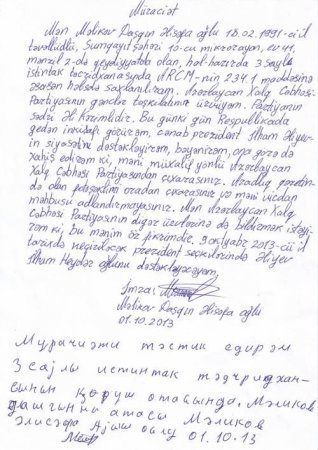 Müraciət
Mən Məlikov Daşqın Əlisəfa oğlu 18.02.1991-ci il
təvəllüdlü, Sumqayıt şəhəri 10-cu mikrorayon, ev 41,
mənzil 2-də qeydiyyatda olan, hal-hazırda 3 saylı
istintaq təcridxanasında ARCM-nin 234.1 maddəsinə
əsasən həbsdə saxlanılıram. Azərbaycan Xalq Cəbhəsi
Partiyasının gənclər təşkilatının üzvüyəm. Partiyanın
sədri Əli Kərimlidir. Bu günki gün Respublikada
gedən inkişafı görürəm, cənab prezident İlham Əliyev-
in siyasətini dəstəkləyirəm, bəyənirəm, ona görə də
xahiş edirəm ki, məni müxalif yönlü Azərbaycan
Xalq Cəbhəsi Partiyasından çıxarasınız. Azadlıq qəzetin-
də olan da oradan çıxarasınız və məni vicdan
məhbusu adlandırmayasınız. Mən Azərbaycan Xalq
Cəbhəsi Partiyasının digər üzvlərinə də bildirmək istəyi-
rəm ki, bu mənim öz fikrimdir. 9 oktyabr 2013-cü il
tarixdə keçirilecək prezident seçkilərində Əliyev
İlham Heydər oğlunu dəstəkləyəcəyəm.
İmza:
Məlikov Daşqın Əlisəfa oğlu
01.10.2013
Мурачиәти тәстик едирәм
3 сајлы истинтак тәдчридхан-
сынын көрүш отағында. Мәликов
Дашгынын атасы Мәликов
Әлисәфа оғлу 01.10.13